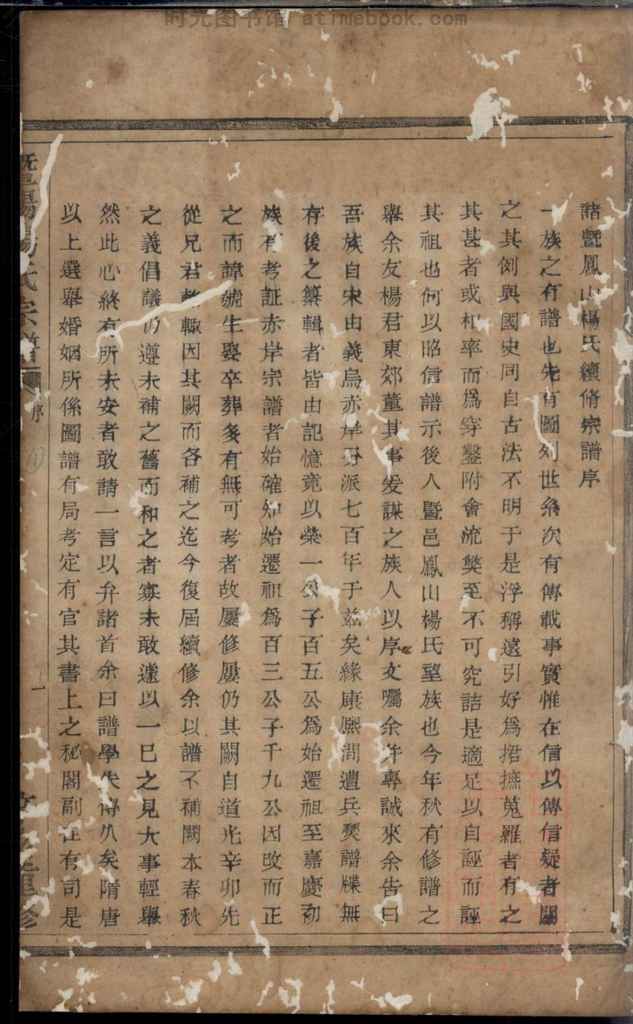 时光图书馆 atimebook.com
諸暨鳳山楊氏續脩宗譜序
一族之有譜也先有圖列世系次有傳載事實惟在信以傳信疑者闕
之其例與國史同自古法不明于是浮稱遠引好爲捃摭蒐羅者有之
其甚者或相率而爲穿鑿附會流獘至不可究詰是適足以自誣而誣
其祖也何以昭信譜示後人暨邑鳳山楊氏望族也今年秋有修譜之
舉余友楊君東郊董其事爰謀之族人以序文囑余并專誠來余告曰
吾族自宋由義烏赤岸分派七百年于茲矣緣康熙間遭兵燹譜牒無
存後之纂輯者皆由記憶竟以榮一公子百五公爲始遷祖至嘉慶初
族有考証赤岸宗譜者始確知始遷祖爲百三公子千九公因攺而正
之而諱號生娶卒葬多有無可考者故屢修屢仍其闕自道光辛卯先
從兄君 輙因其闕而各補之迄今復屆續修余以譜不補闕本春秋
之義倡議仍遵未補之舊而和之者寡未敢遽以一巳之見大事輕舉
然此心終有所未安者敢請一言以弁諸首余曰譜學失傳久矣隋唐
以上選舉婚姻所係圖譜有局考定有官其書上之秘閣副在有司是
暨陽楊氏宗譜 序 一